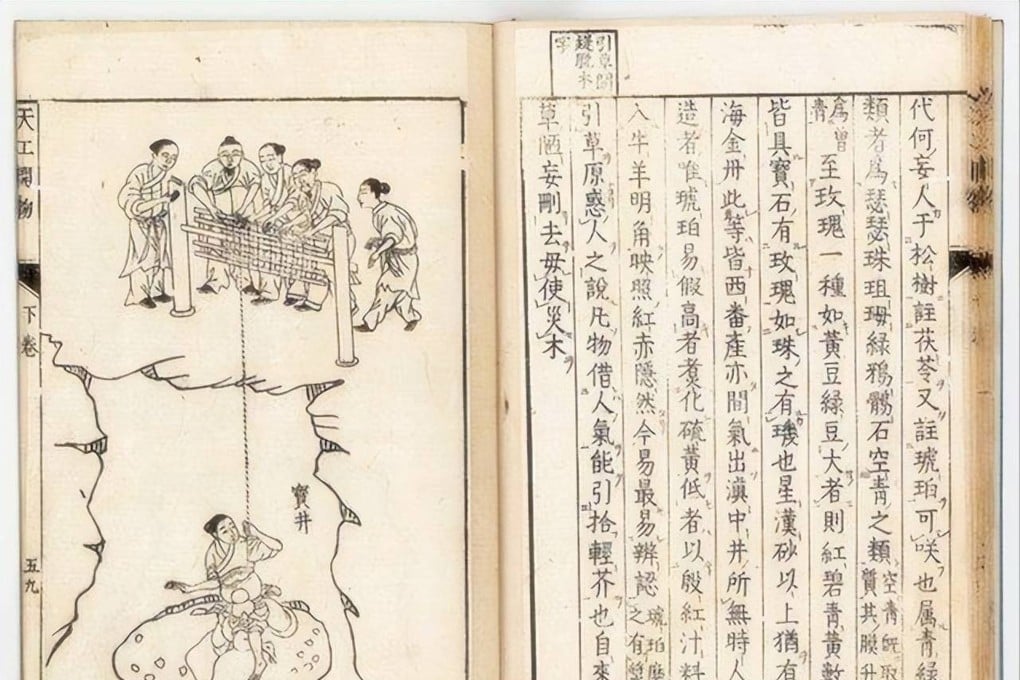 代何妄人于松樹註茯苓又註琥珀可咲也属青綠
類者爲瑟瑟珠珇綠鴉鶻石空青之類空青既取
質其膜升
爲曾
青
至玫瑰一種如黃豆綠豆大者則紅碧青黃數
皆具寶石有玫瑰如珠之有璣也星漢砂以上猶有
海金丹此等皆西番產亦間氣出滇中井所無時人
造者唯琥珀易假高者煮化硫黃低者以殷紅汁料
入牛羊明角映照紅赤隱然今易最易辨認琥珀磨
之有漿
引草原惑人之說凡物借人氣能引拾輕芥也自來
草陋妄刪去毋使災木
寶井
天工開物
下卷
五九